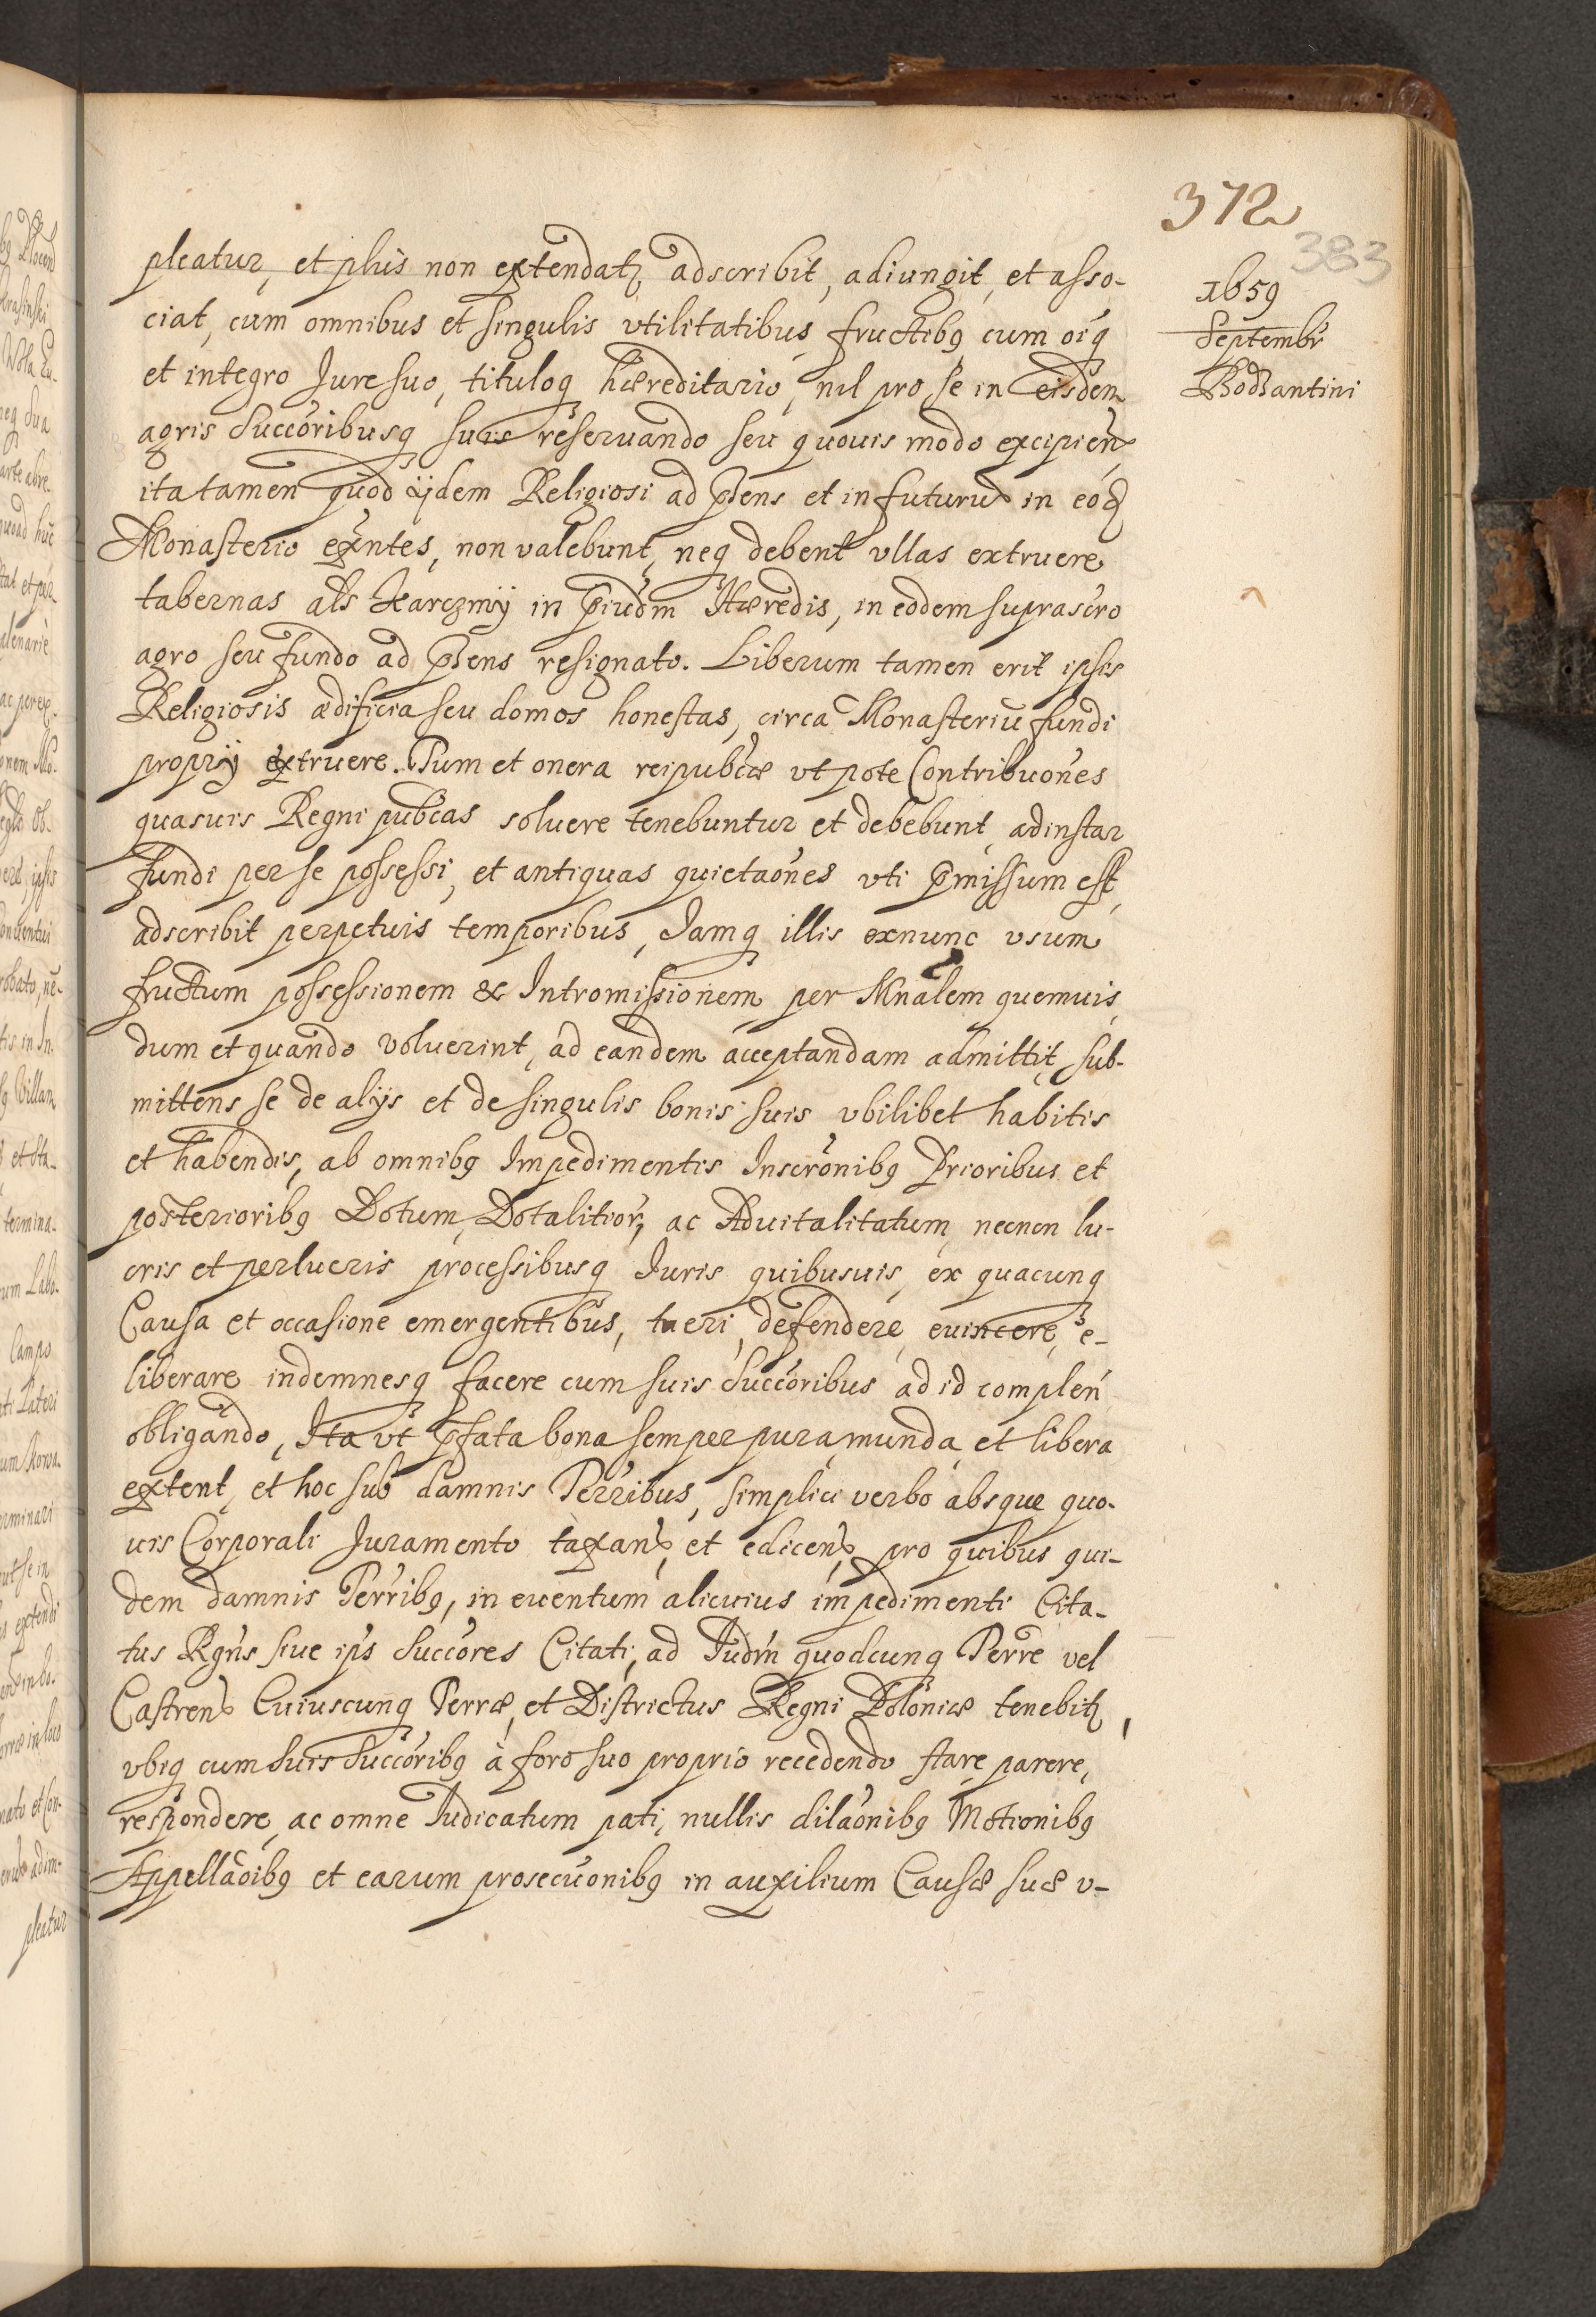 372
383
1659
Septembr
Bodzantini
pleatur, et plus non extendatz adscribit, adiungit, et asso-
ciat, cum omnibus et singulis vtilitatibus fructibq cum oiq
et integro Jure suo, tituloq hæreditario, nil pro se in eisdem
agris Succoribusq suis reseruando seu quouis modo excipien
ita tamen quod ijdem Religiosi ad pns et in futurū in eod
Monasterio exntes, non valebunt, neq debent vllas extruere
tabernas als Karczmÿ in piudm Hæredis, in eodem suprascro
agro seu fundo ad pns resignato. Liberum tamen erit ipsis
Religiosis ædificia seu domos honestas, circa Monasteriū fundi
proprÿ extruere. Tum et onera reipubcæ vt pote Contribuones
quasuis Regni pubcas soluere tenebuntur et debebunt, ad instar
fundi per se possessi, et antiquas quietaones vti pmissum est,
adscribit perpetuis temporibus, Jamq illis exnunc vsum
fructum possessionem & Intromissionem per Mnalem quemuis,
dum et quando voluerint, ad eandem acceptandam admittit, sub-
mittens se de alÿs et de singulis bonis suis vbilibet habitis
et habendis, ab omnibq Impedimentis Inscronibq Prioribus et
posterioribq Dotum, Dotalitior, ac Aduitalitatum, necnon lu-
cris et perlucris processibusq Juris quibusuis, ex quacunq
Causa et occasione emergentibus, tueri, defendere, euincere, e-
liberare indemnesq facere cum suis Succoribus ad id complen
obligando, Ita vt pfata bona semper pura, munda, et libera
extent, et hoc sub damnis Terribus, simplici verbo absque quo-
uis Corporali Juramento taxan, et edicen, pro quibus qui-
dem damnis Terribq, in euentum alicuius impedimenti Cita-
tus Rgns siue ips Succores Citati, ad Judm quodcunq Terre vel
Castren Cuiuscunq Terræ, et Districtus Regni Poloniæ tenebitz,
vbiq cum suis Succoribq à foro suo proprio recedendo stare, parere,
respondere, ac omne Judicatum pati, nullis dilaonibq Motionibq
Appellaoibq et earum prosecuonibq in auxilium Causæ suæ v-